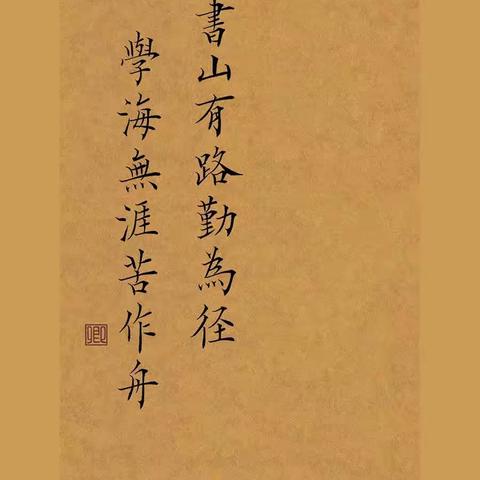 書山有路勤為径
學海無涯苦作舟
卿